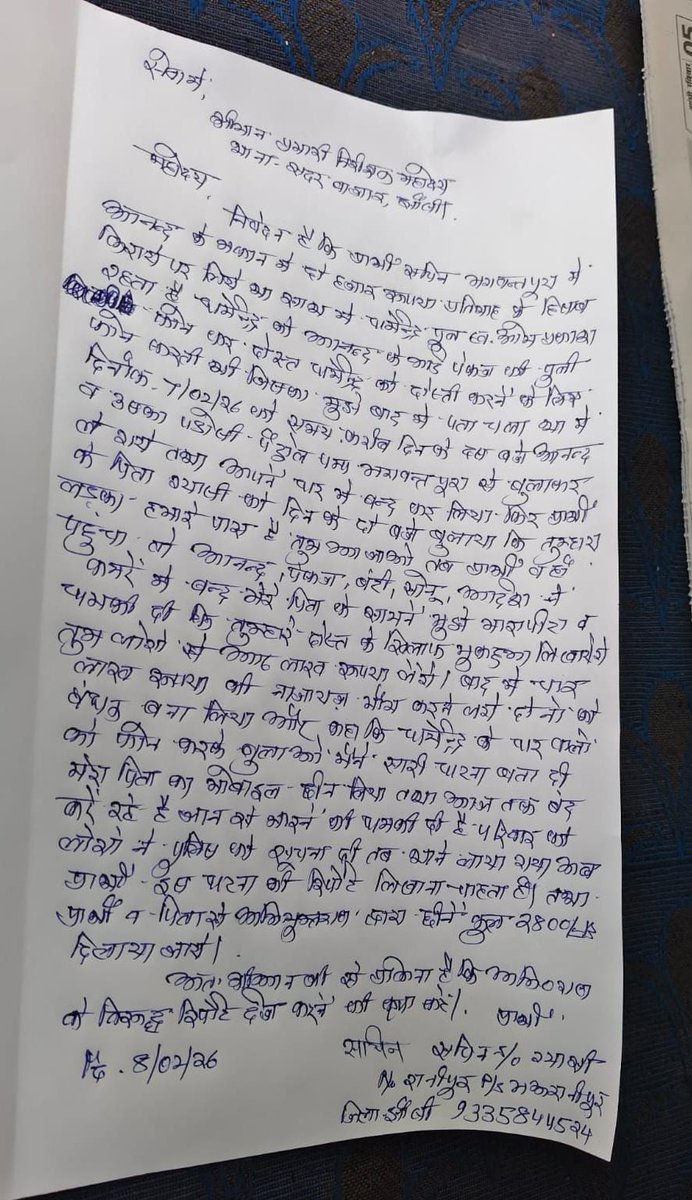 सेवा में,
श्रीमान प्रभारी निरीक्षक महोदय
थाना- सदर बाजार, झाँसी।
महोदय,
निवेदन है कि प्रार्थी सचिन भगवन्तपुरा में
आनन्द के मकान में दो हजार रूपया प्रतिमाह के हिसाब
किराये पर लिये था साथ में धर्मेन्द्र पुत्र स्व. ओम प्रकाश
रहता है धर्मेन्द्र को आनन्द के भाई पंकज की पुत्री
फोन कर दोस्त धर्मेन्द्र को दोस्ती करने के लिए
फोन करती थी जिसका मुझे बाद में पता चला था मैं
दिनांक- 7/02/26 को समय करीब दिन के दस बजे आनन्द
व उसका पड़ोसी पेट्रोल पम्प भगवन्तपुरा से बुलाकर
ले गये तथा अपने घर में बन्द कर लिया फिर प्रार्थी
के पिता श्यामी को दिन के दो बजे बुलाया कि तुम्हारा
लड़का हमारे पास है तुम आ जाओ तब प्रार्थी वहाँ
पहुचा तो आनन्द, पंकज, बंटी, सोनू, आदेश ने
कमरे में बन्द मेरे पिता के सामने मुझे मारापीटा व
धमकी दी कि तुम्हारे दोस्त के खिलाफ मुकद्दमा लिखायेगे
तुम लोगो से आठ लाख रूपया लेगे। बाद में चार
लाख रूपया की नाजायज माँग करने लगे दोनो को
बंधक बना लिया और कहा कि धर्मेन्द्र के घर वालो
को फोन करके बुलाओ मैने सारी घटना बता दी
मेरा पिता का मोबाइल छीन लिया तथा आज तक बंद
करे रहे है जान से मारने की धमकी दी है परिवार के
लोगो ने पुलिस को सूचना दी तब थाने लाया गया अब
प्रार्थी इस घटना की रिपोर्ट लिखाना चाहता है। तथा
प्रार्थी व पिता से अभियुक्तगण द्वारा छीने कुल 2800/-
दिलाया जाये।
अतः श्रीमान जी से प्रार्थना है कि अभि०गण
के विरूद्ध रिपोर्ट दर्ज करने की कृपा करें। प्रार्थी
दि. 8/02/26
सचिन सचिन S/o श्यामी
No रानीपुर P/s मऊरानीपुर
जिला झाँसी 9335844524